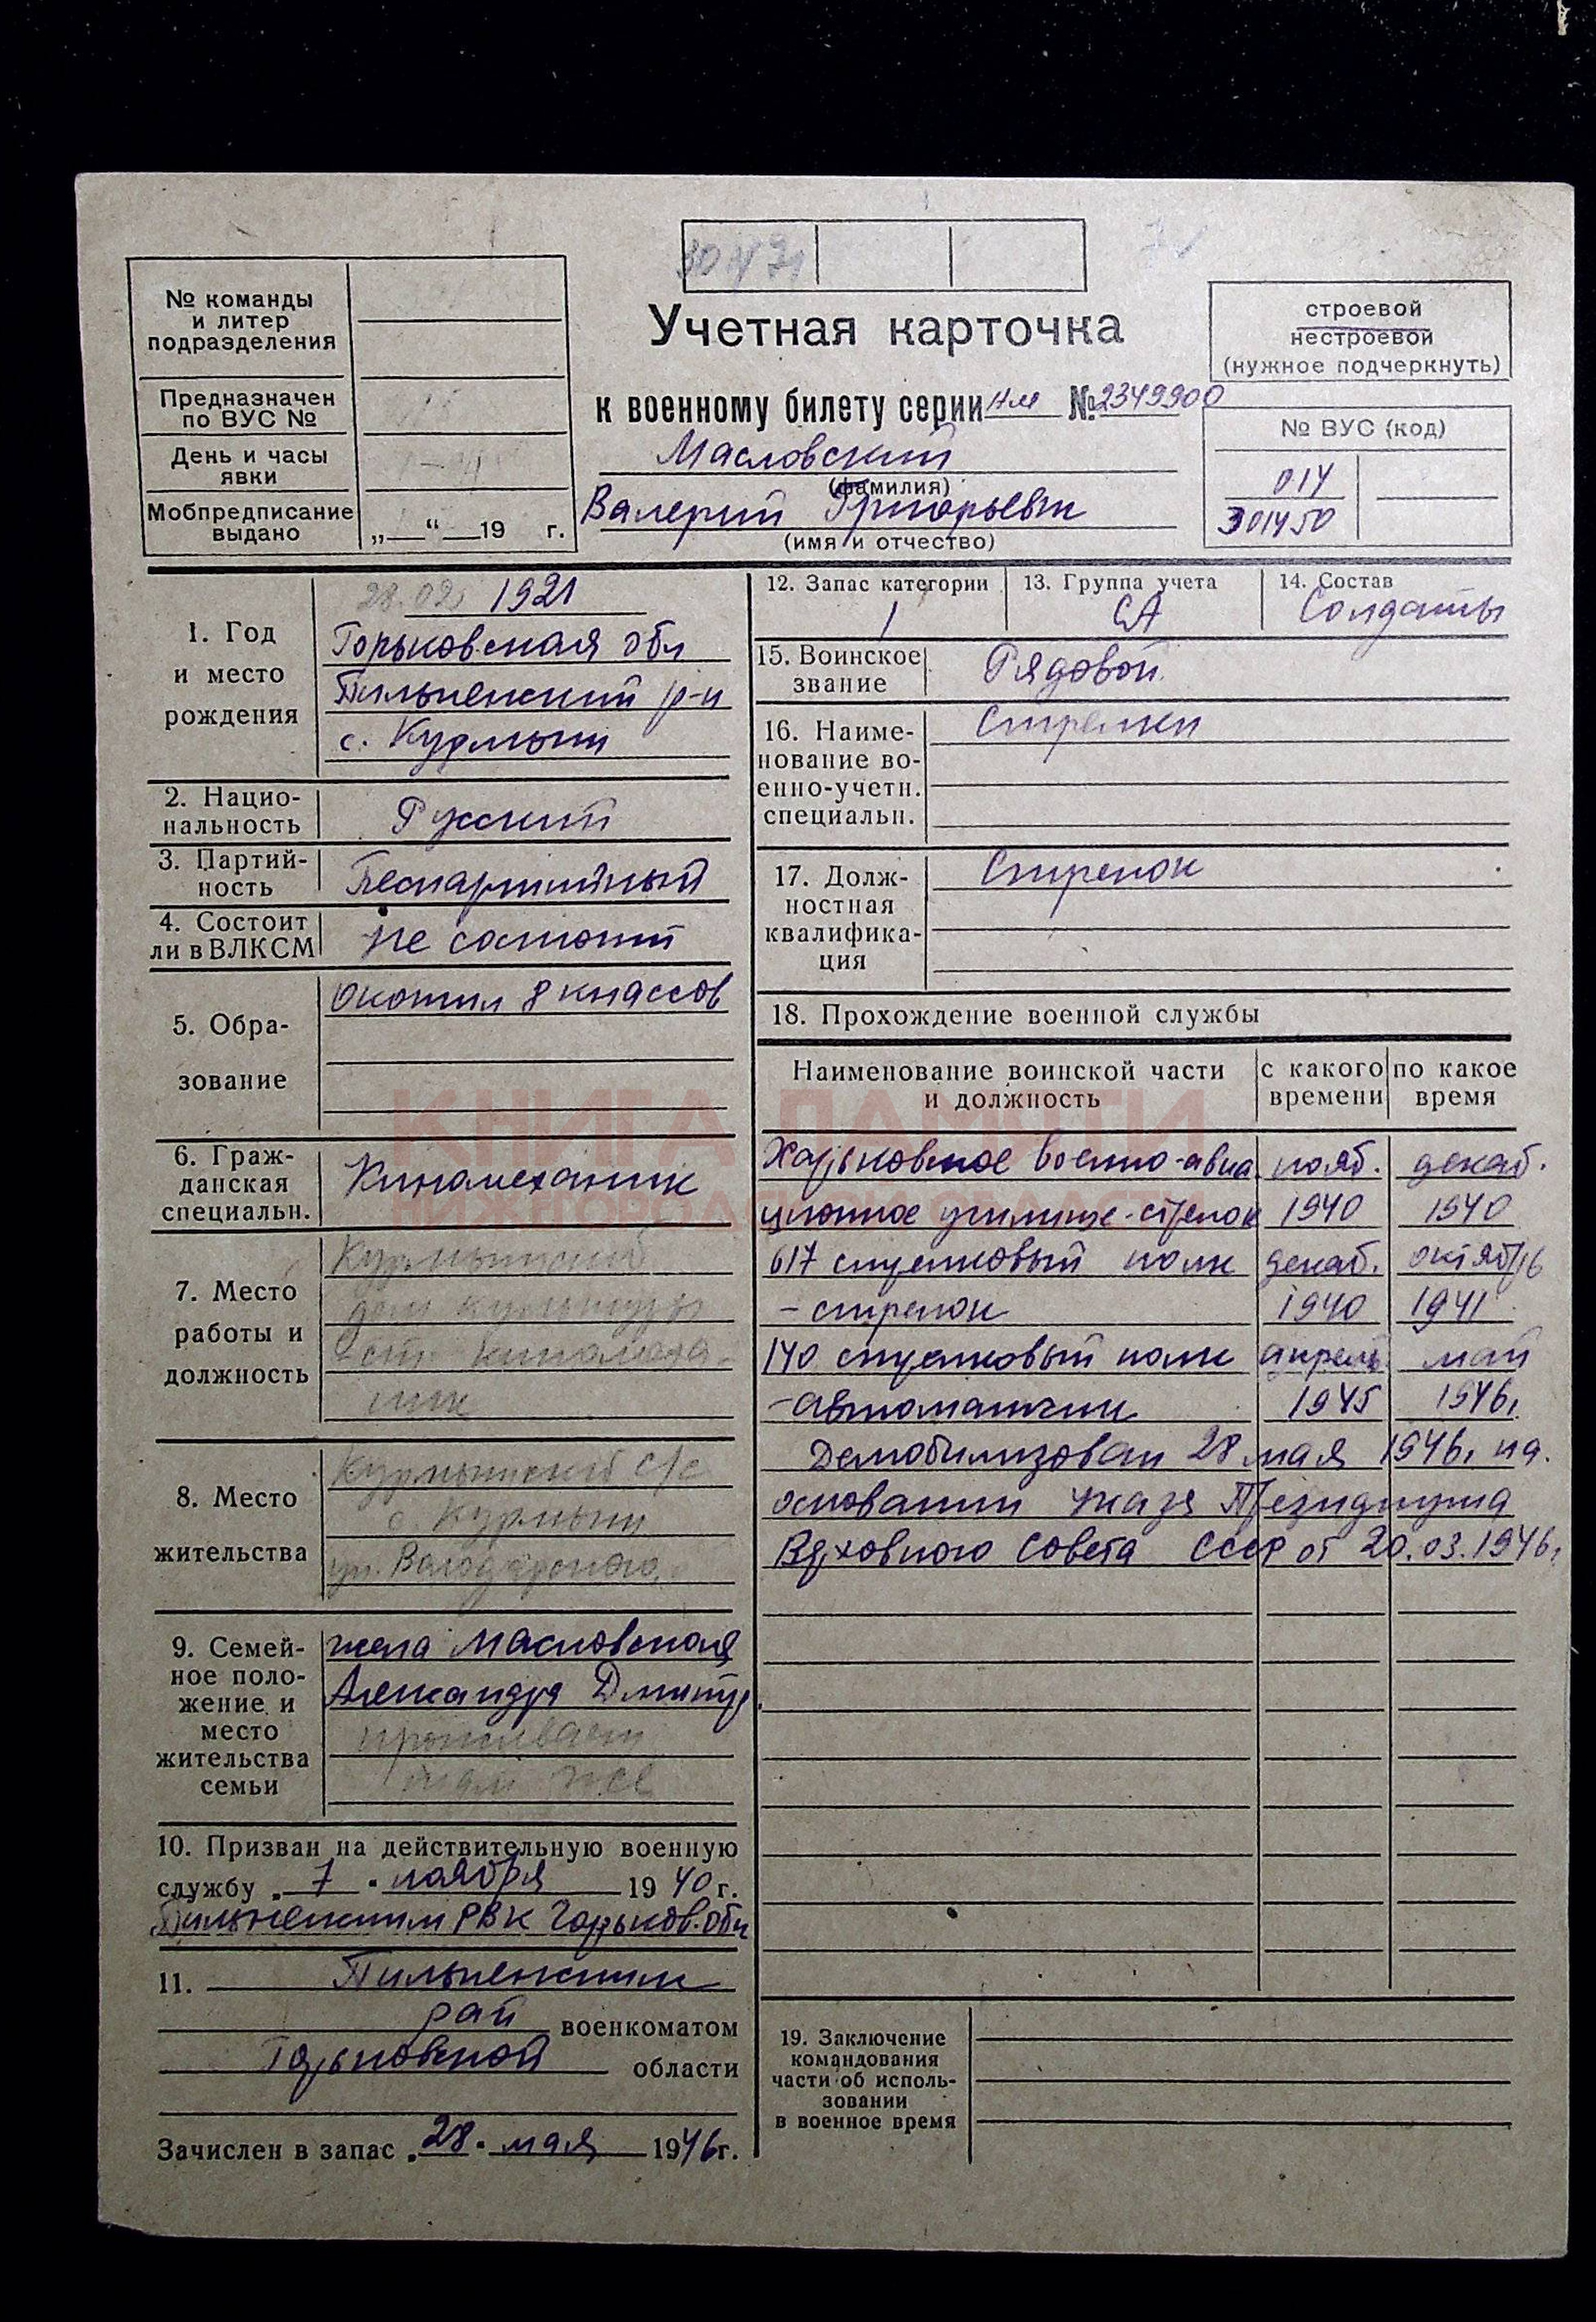 № команды
и литер
подразделения
Предназначен
по ВУС №
День и часы
явки
Мобпредписание
выдано
„ “ 19 г.
Учетная карточка
к военному билету серии НМ № 2349900
Масловский
(фамилия)
Валерий Григорьевич
(имя и отчество)
строевой
нестроевой
(нужное подчеркнуть)
№ ВУС (код)
014
301450
1. Год
и место
рождения
28.02. 1921
Горьковская обл
Пильненский р-н
с. Курмыш
2. Нацио-
нальность
Русский
3. Партий-
ность
Беспартийный
4. Состоит
ли в ВЛКСМ
Не состоит
5. Обра-
зование
Окончил 8 классов
6. Граж-
данская
специальн.
Киномеханик
7. Место
работы и
должность
Курмышский
дом культуры
- ст. киномеха-
ник
8. Место
жительства
Курмышский с/с
с Курмыш
ул. Володарского
9. Семей-
ное поло-
жение и
место
жительства
семьи
жена Масловская
Александра Дмитр.
проживает
там же
10. Призван на действительную военную
службу „7" ноября 1940 г.
Пильненским РВК Горьков. обл
11. Пильненским
рай военкоматом
Горьковской области
Зачислен в запас „28" мая 1946 г.
12. Запас категории
1
13. Группа учета
СА
14. Состав
Солдаты
15. Воинское
звание
Рядовой
16. Наиме-
нование во-
енно-учетн.
специальн.
Стрелки
17. Долж-
ностная
квалифика-
ция
Стрелок
18. Прохождение военной службы
Наименование воинской части
и должность
с какого
времени
по какое
время
Харьковское военно-авиа нояб. декаб.
ционное училище - стрелок 1940 1940
617 стрелковый полк декаб. октябрь
- стрелок 1940 1941
140 стрелковый полк апрель май
- автоматчик 1945 1946г
Демобилизован 28 мая 1946г на
основании указа Президиума
Верховного Совета СССР от 20.03.1946г
19. Заключение
командования
части об исполь-
зовании
в военное время
КНИГА ПАМЯТИ
НИЖЕГОРОДСКОЙ ОБЛАСТИ